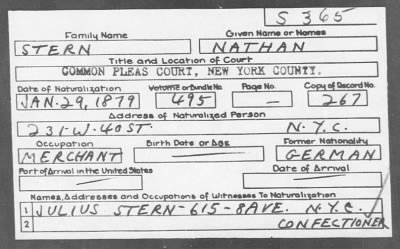 S 365
Family Name Given Name or Names
STERN NATHAN
Title and Location of Court
COMMON PLEAS COURT, NEW YORK COUNTY.
Date of Naturalization Volume or Bundle No. Page No. Copy of Record No.
JAN. 29, 1879 495 — 267
Address of Naturalized Person
231-W. 40 ST. N.Y.C.
Occupation Birth Date or Age Former Nationality
MERCHANT — GERMAN
Port of Arrival in the United States Date of Arrival
— —
Names, Addresses and Occupations of Witnesses To Naturalization
1 JULIUS STERN-615-8AVE. N.Y.C.
2 CONFECTIONER